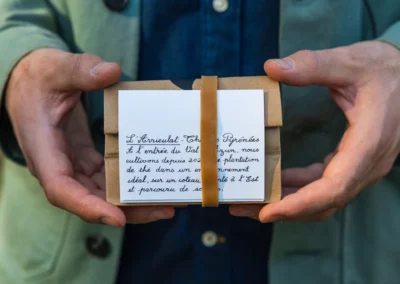 L'Arrieulat · Thé Pyrénées
A l'entrée du Val d'Azun, nous
cultivons depuis 202 plantation
de thé dans un environnement
idéal, sur un coteau à l'Est
et parcouru de